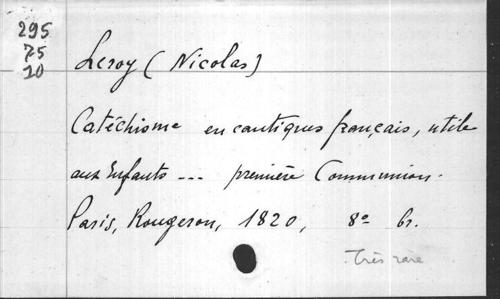 295
75
10
Leroy (Nicolas)
Catéchisme en cantiques français, utile
aux Enfants --- première Communion.
Paris, Rougeron, 1820, 8º br.
Très rare